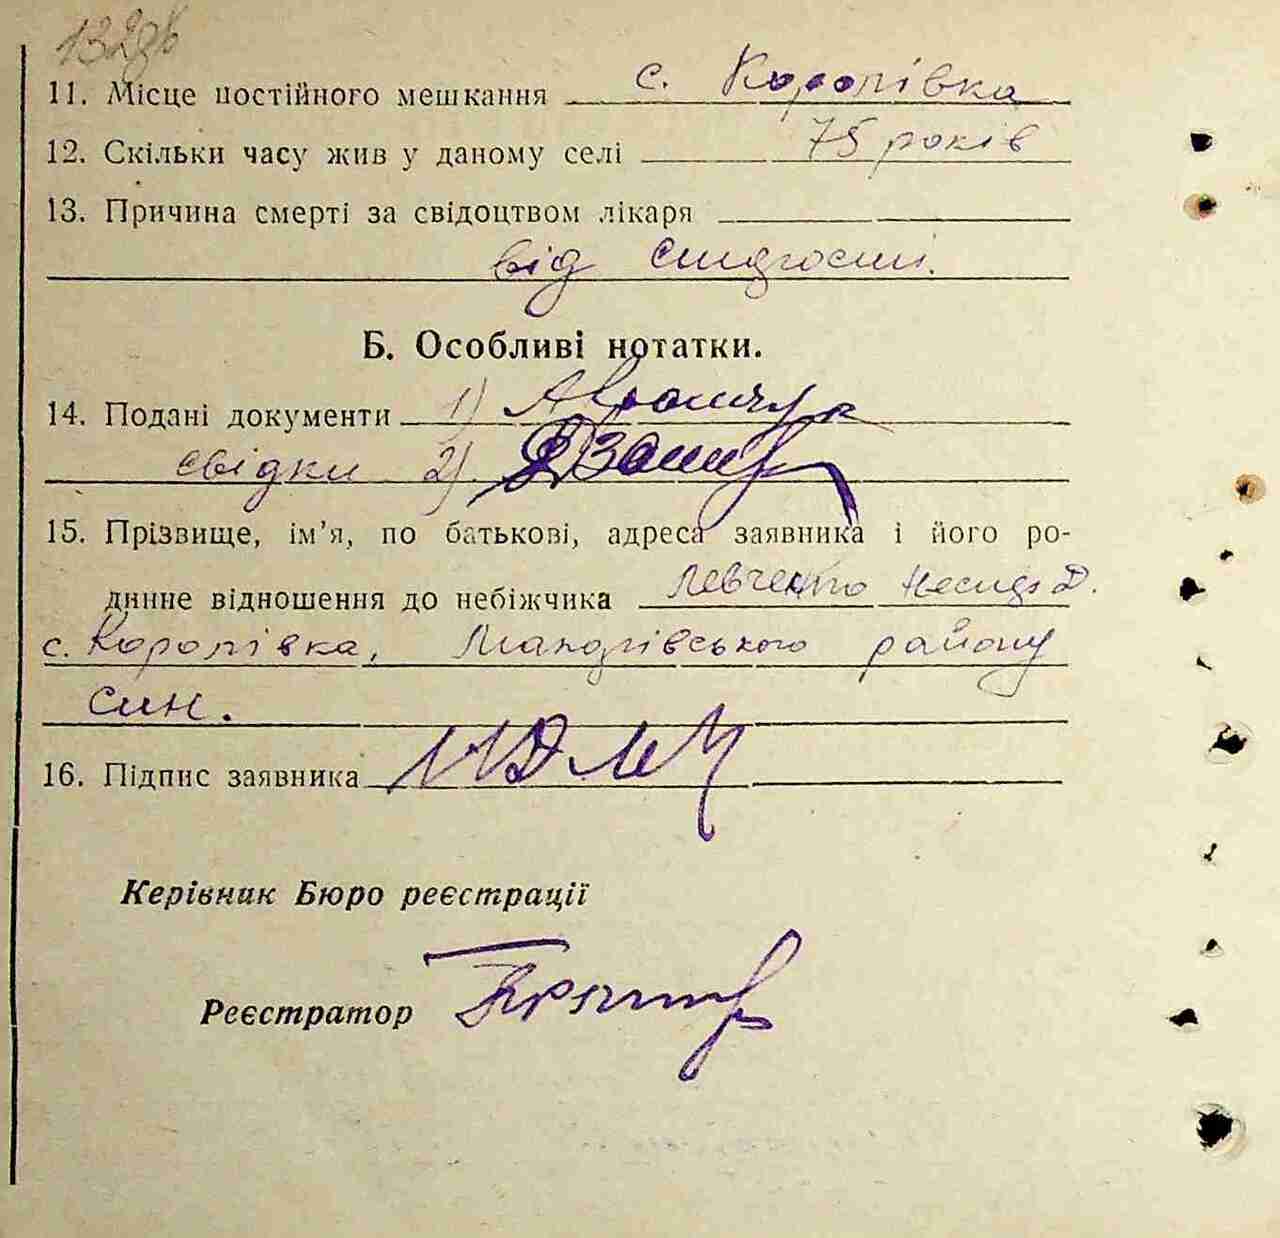 132
11. Місце постійного мешкання с. Королівка
12. Скільки часу жив у даному селі 75 років
13. Причина смерті за свідоцтвом лікаря
від
Б. Особливі нотатки.
14. Подані документи 1)
свідки 2)
15. Прізвище, ім’я, по батькові, адреса заявника і його ро-
динне відношення до небіжчика Левченко Д.
с. Королівка, Макарівського району
син.
16. Підпис заявника
Керівник Бюро реєстрації
Реєстратор